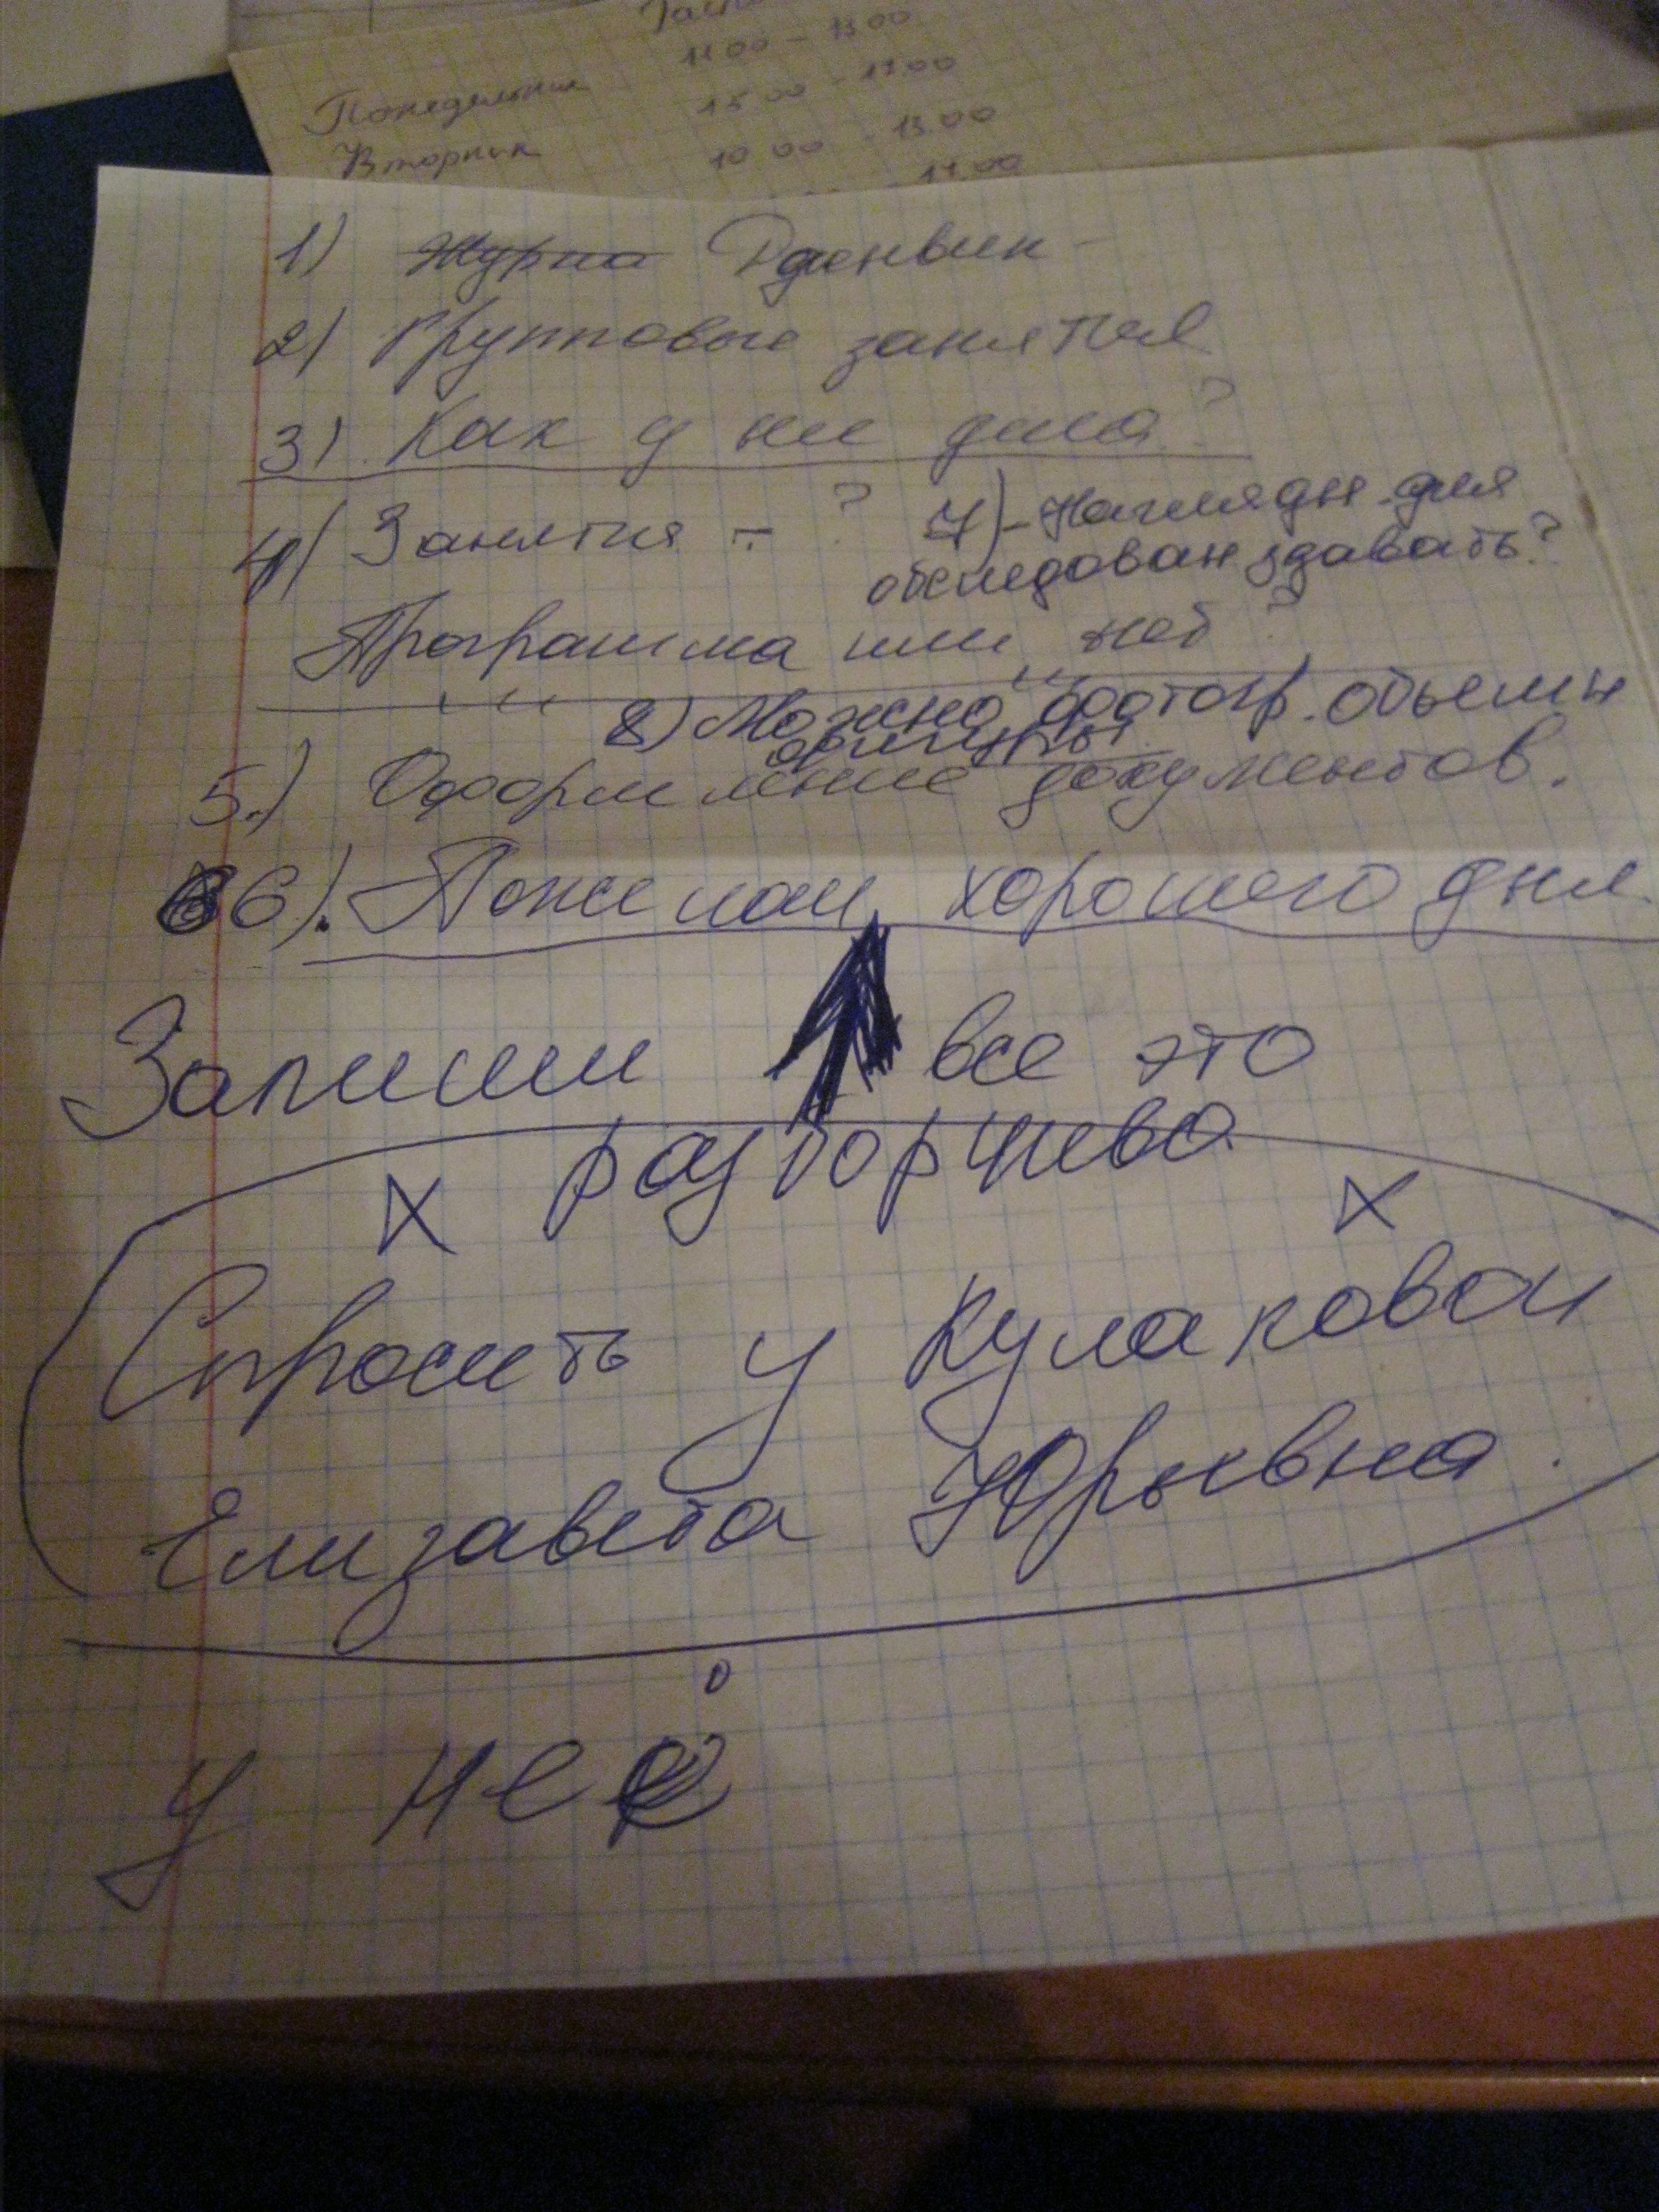 11 00 - 13 00
Понедельник 15 00 - 17.00
Вторник 10 00 - 13.00
- 17.00
1) Журна Дневник -
2) Групповые занятия
3) Как у неё дела?
4) Занятия - ?
7) - Наглядн. для
обследован здавать?
Программа или нет?
8) Можно фотогр. объемн
фигуры
5.) Оформление документов.
6). Пожелай хорошего дня
Запиши все это
разборчево
Спросить у Кулаковой
Елизавета Юрьевна.
у неё